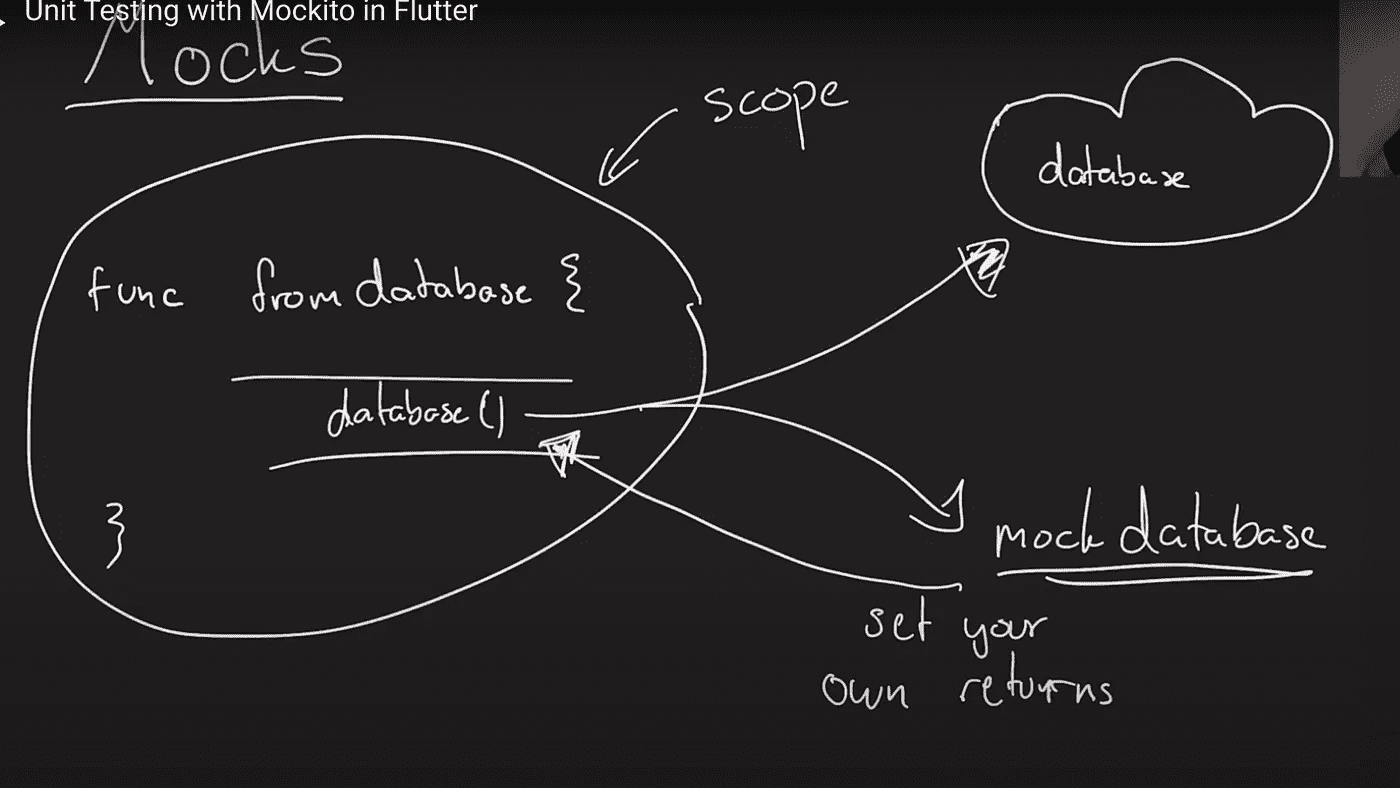 Unit Testing with Mockito in Flutter
Mocks
scope
database
func from database {
database()
}
mock database
set your
own returns